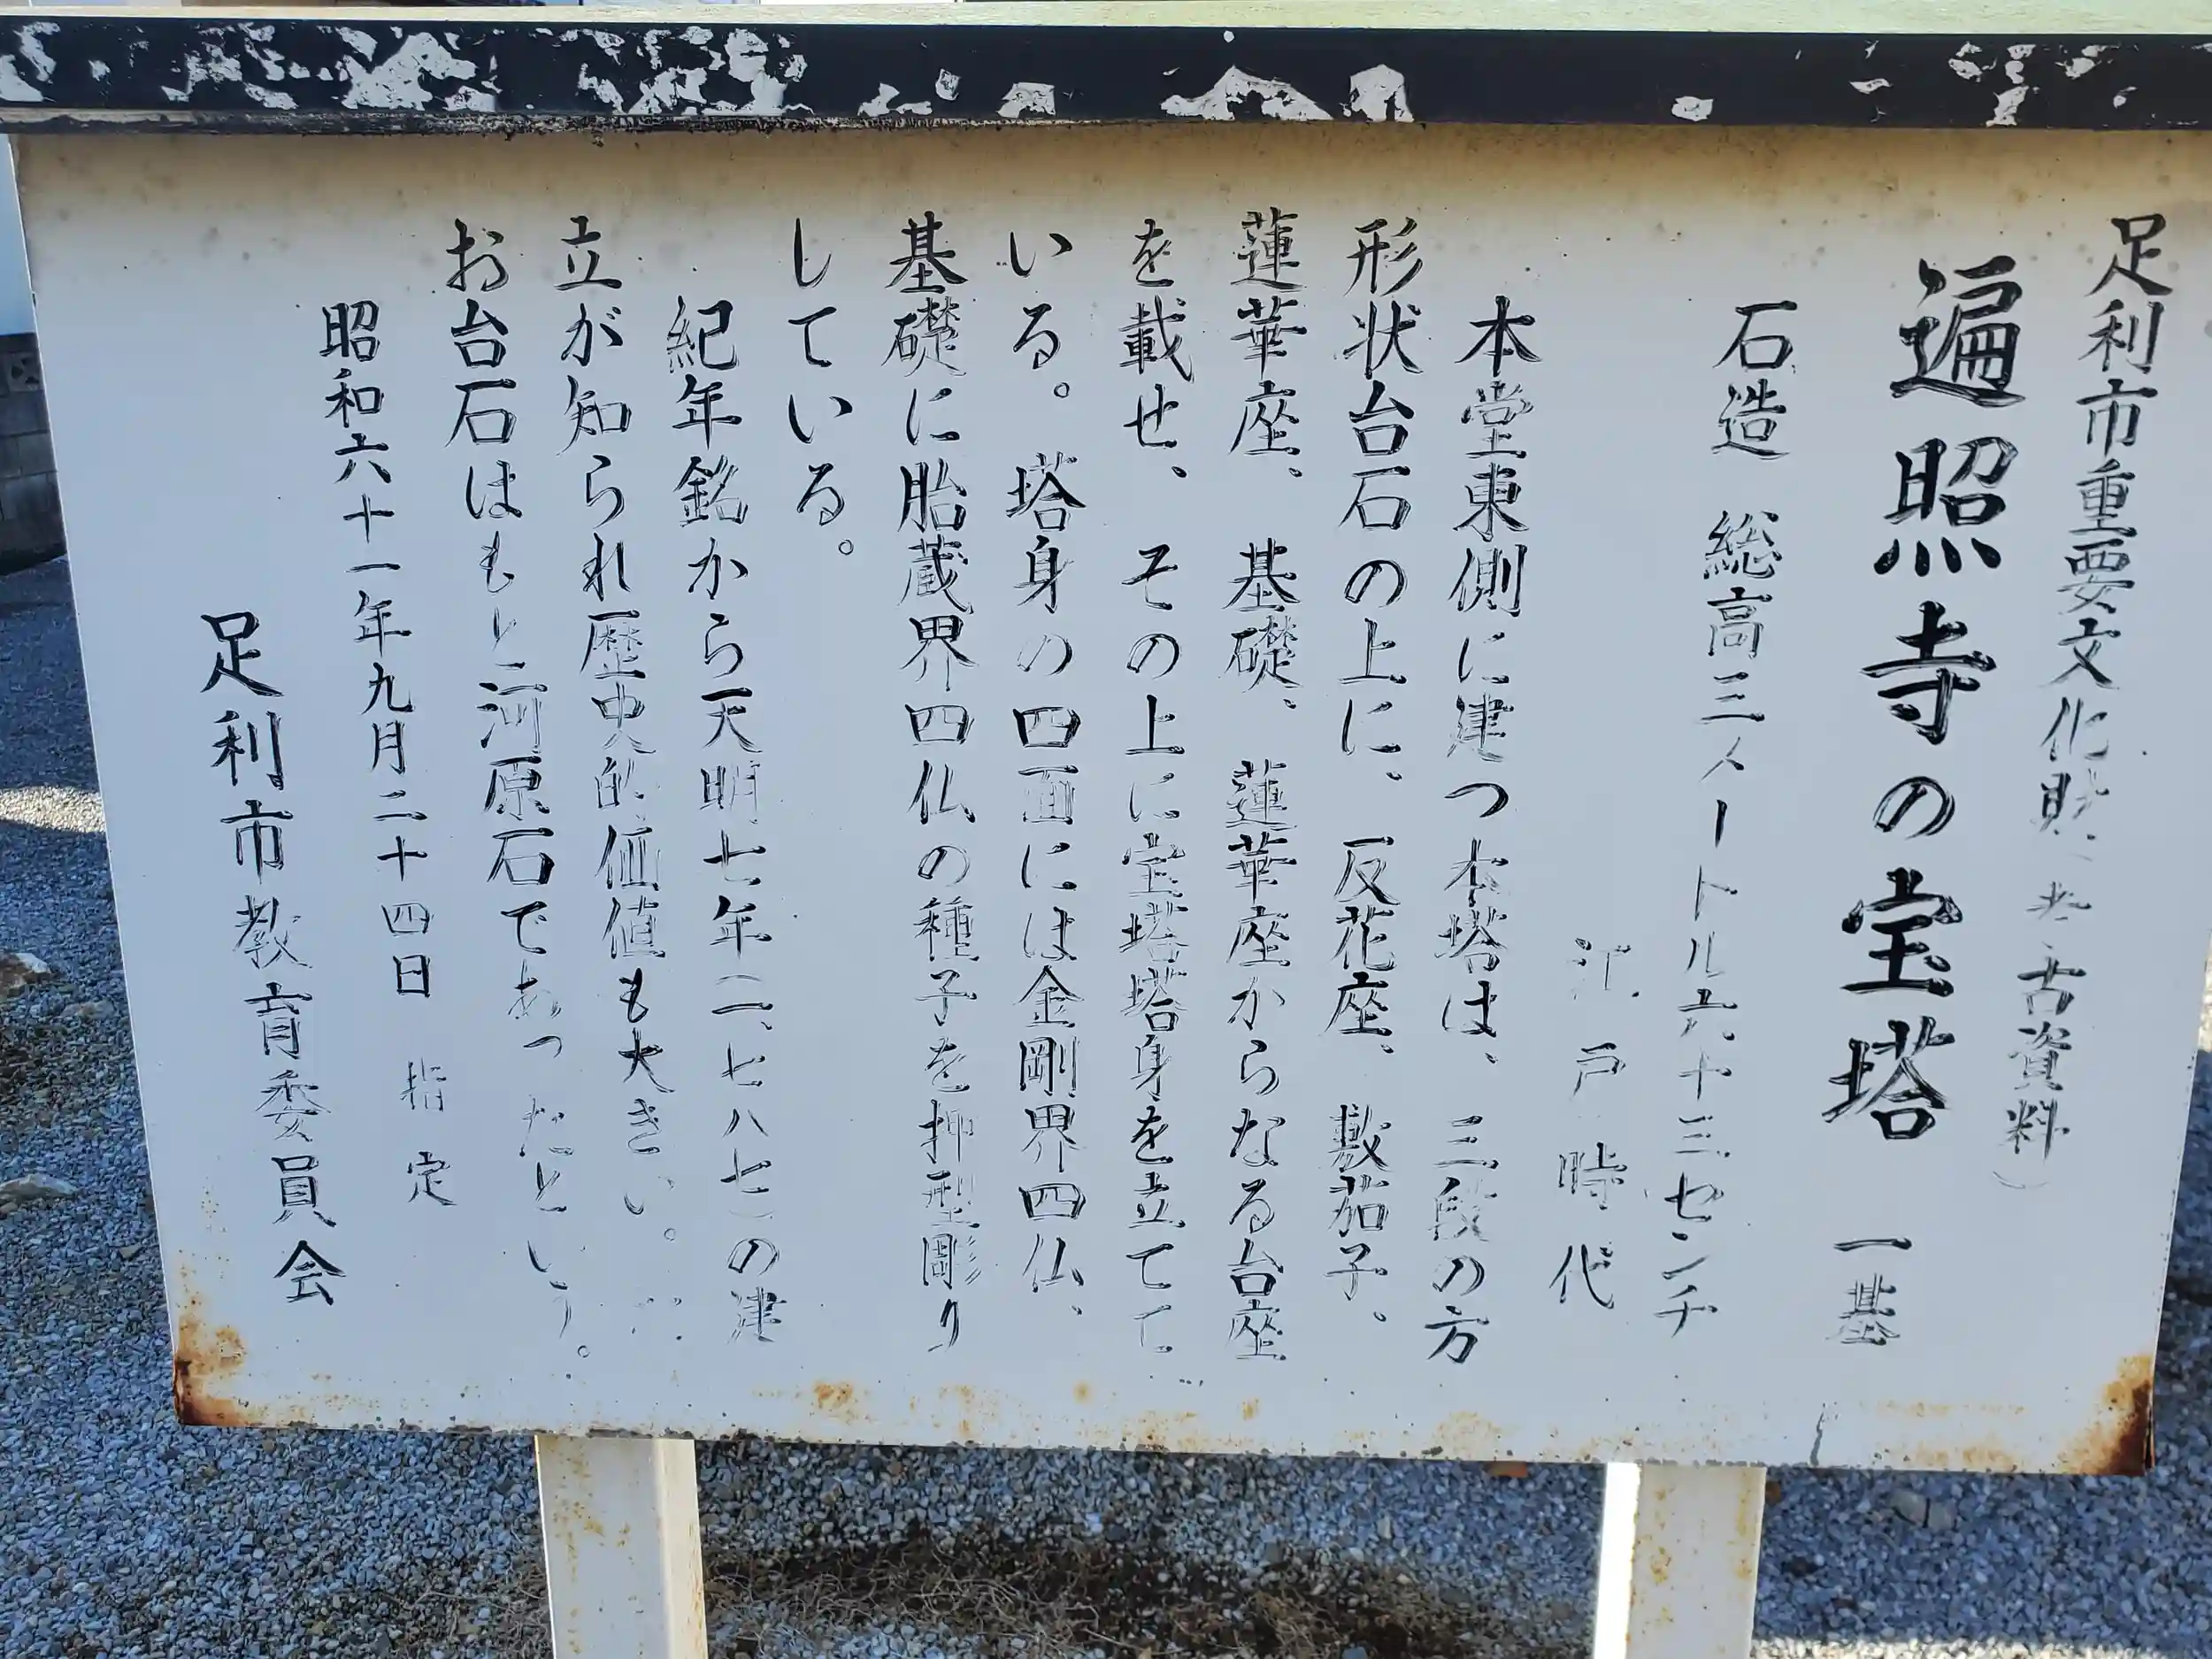 足利市重要文化財（考古資料）
遍照寺の宝塔　一基
石造　総高三メートル六十三センチ
江戸時代
本堂東側に建つ本塔は、三段の方
形状台石の上に、反花座、敷茄子。
蓮華座、基礎、蓮華座からなる台座
を載せ、その上に宝塔塔身を立てて
いる。塔身の四面には金剛界四仏、
基礎に胎蔵界四仏の種子を押型彫り
している。
紀年銘から天明七年（一七八七）の建
立が知られ歴史的価値も大きい。な
お台石はもと河原石であったという。
昭和六十一年九月二十四日　指定
足利市教育委員会